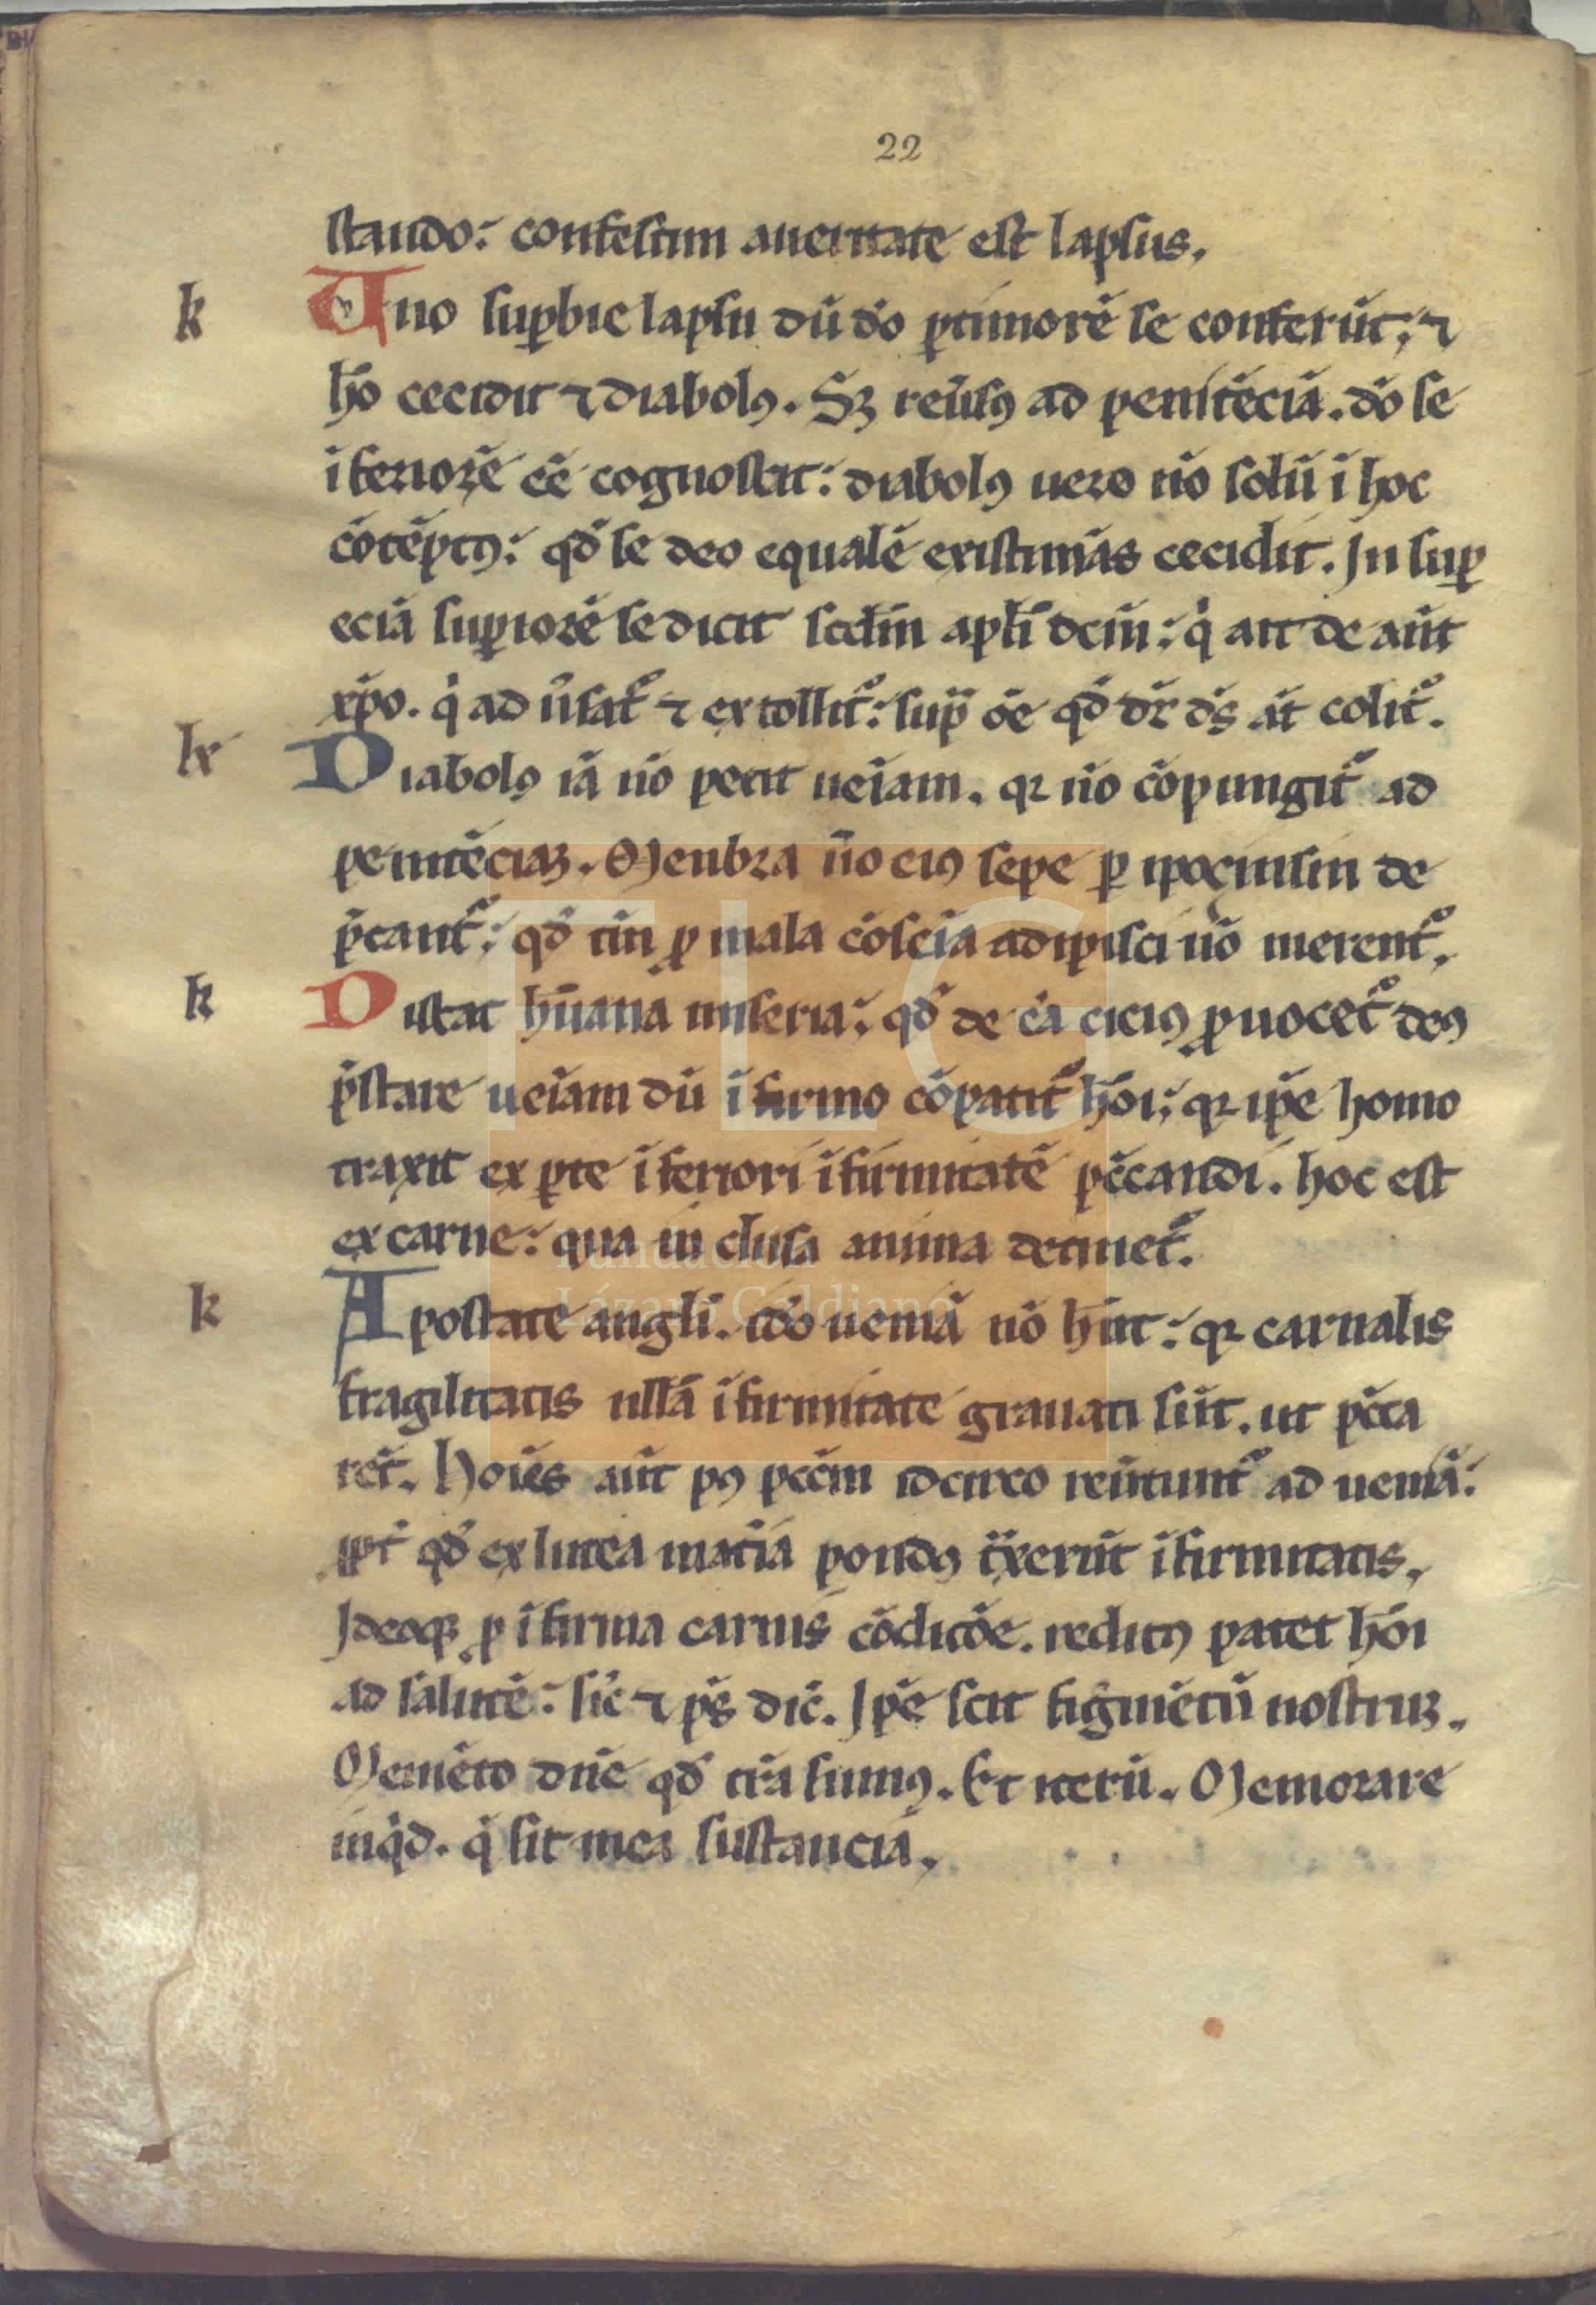 22
stando: confestim aueritate est lapsus.
k Uno suꝑbie lapsu dū dō ꝑ timorē se conferūt; ⁊
hō cecidit ⁊ diabolꝯ. Sꝫ reūsꝯ ad penitēciā. dō se
īferiorē eē cognoscit: diabolꝯ uero nō solū ī hoc
cōtēptꝯ: qđ se deo equalē existimās cecidit. Jn suꝑ
eciā suꝑiorē se dicit scđm apłi dcm̄: q̇ ait de aūt
xp̄o. q̇ ad ūsat᷑ ⁊ extollit᷑: sup̄ oē qđ dr̄ ds̄ āt colit᷑.
k Diabolꝯ iā nō petit ueīam. qꝛ nō cōpungit᷑ ad
penitēciaꝫ. Menbra ūo eiꝯ sepe ꝑ ipoc̄ insin de
p̄cant᷑: qđ tn̄ ꝓ mala cōscīa adipisci nō merent᷑.
k Distat hūana miseria: qđ de eā ciciꝯ ꝓuocet᷑ deꝯ
p̄stare ueīam dū īfirmo cōpatit᷑ hōi; qꝛ ip̄e homo
traxit ex ꝑte īferiori īfirmitatē pēcandi. hoc est
ex carne: qua in clusa anima detinet᷑.
k Apostate angłi. idō ueniā nō hn̄t: qꝛ carnalis
fragilitatis ullā īfirmitate grauati sūt. ut pēca
rēt. Hoīes aūt pꝯ pccm̄ idcirco reūtunt᷑ ad ueniā:
ꝓpt̄ qđ ex lutea mat̄ia pondꝯ t̄xerūt īfirmitatis.
Jdeoqꝫ ꝓ īfirma carnis cōdicōe. reditꝯ patet hōi
ad salutē: sic̄ ⁊ ps̄ dic̄. Jp̄e scit figmētū nostruꝫ.
Memēto dn̄e qđ tr̄a sumꝯ. Et iterū. Memorare
inq̇d. q̄ sit mea sustancia.
FLG
Fundación
Lázaro Galdiano